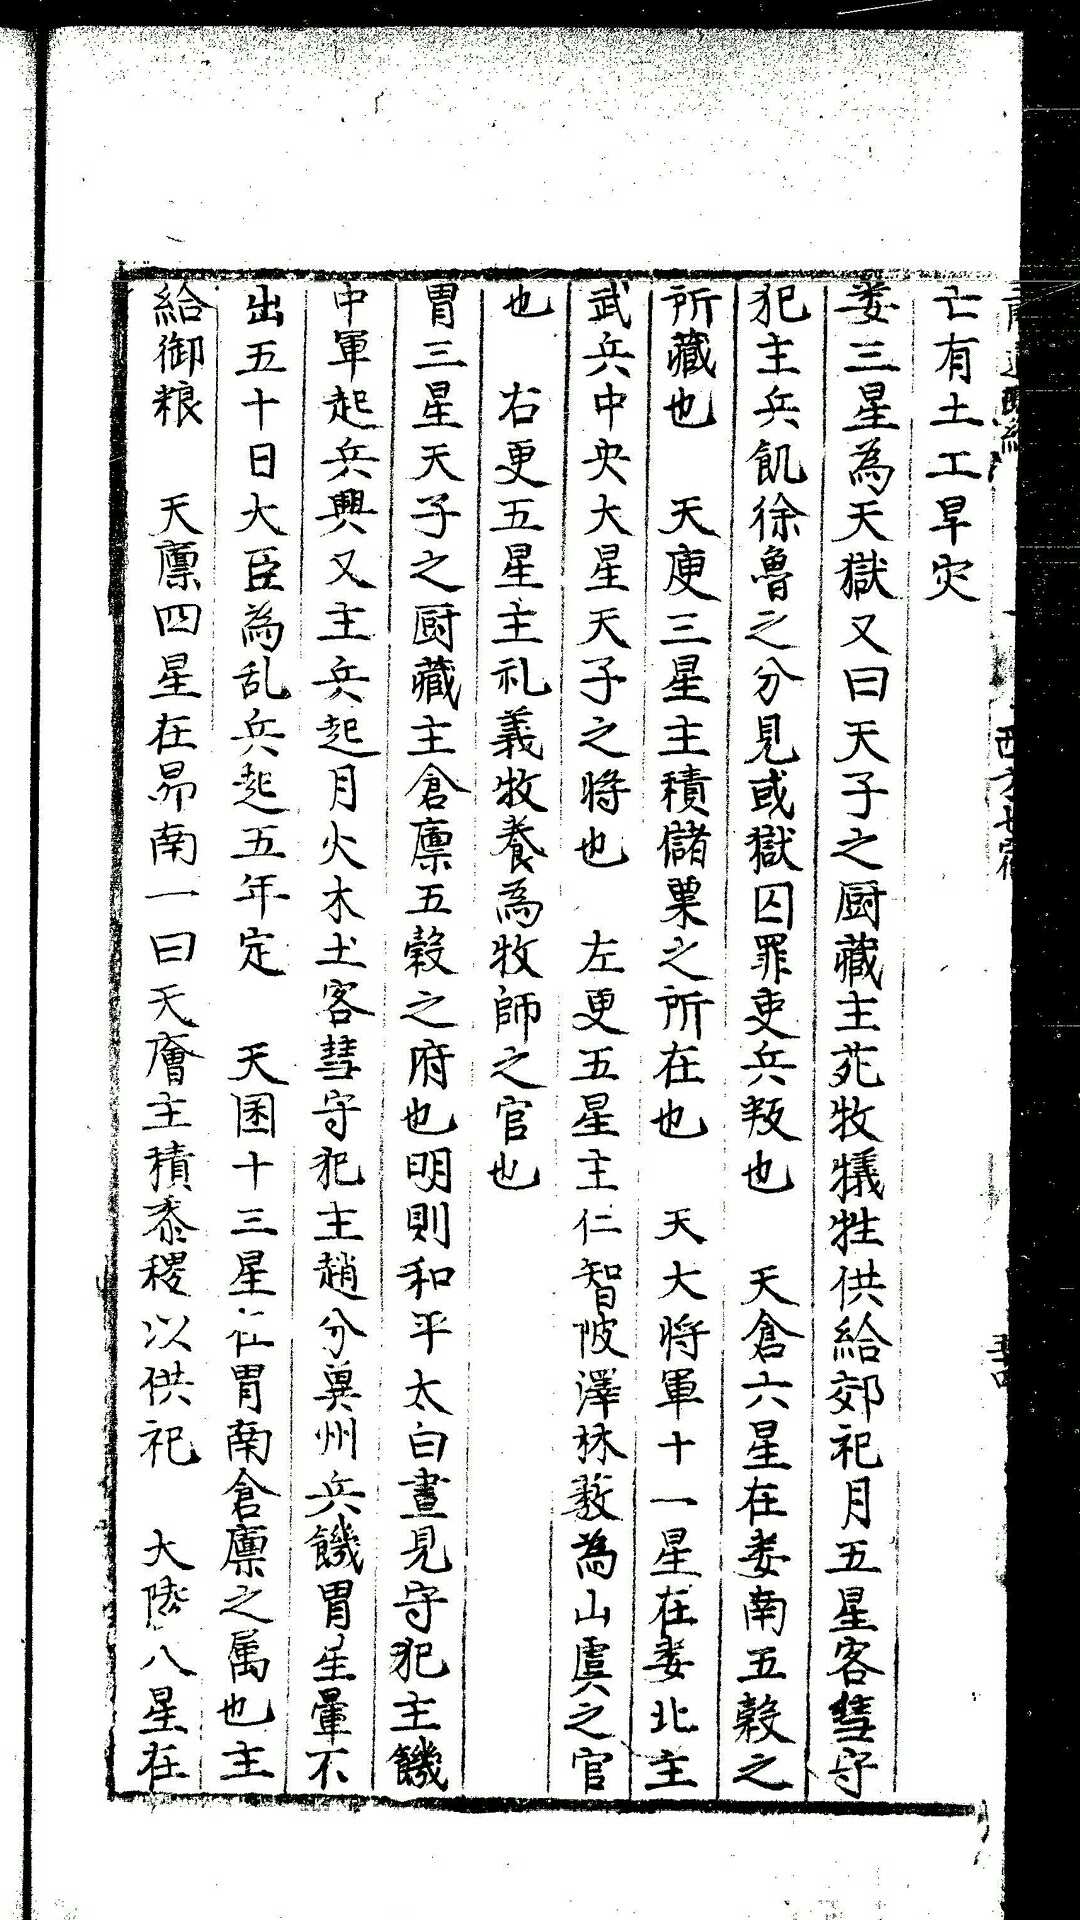 亡有土工旱灾
婁三星為天獄又曰天子之厨藏主苑牧犠牲供給郊祀月五星客彗守
犯主兵飢徐魯之分見或獄囚罪吏兵叛也　天倉六星在婁南五穀之
所藏也　天庾三星主積儲粟之所在也　天大将軍十一星在婁北主
武兵中央大星天子之將也　左更五星主仁智陂澤林薮為山虞之官
也　右更五星主礼義牧養為牧師之官也
胃三星天子之厨藏主倉廪五穀之府也明則和平太白晝見守犯主饑
中軍起兵興又主兵起月火木土客彗守犯主趙分兾州兵饑胃星暈不
出五十日大臣為乱兵起五年定　天囷十三星在胃南倉廪之属也主
給御粮　天廪四星在昴南一曰天廥主積黍稷以供祀　大陵八星在
西方七宿